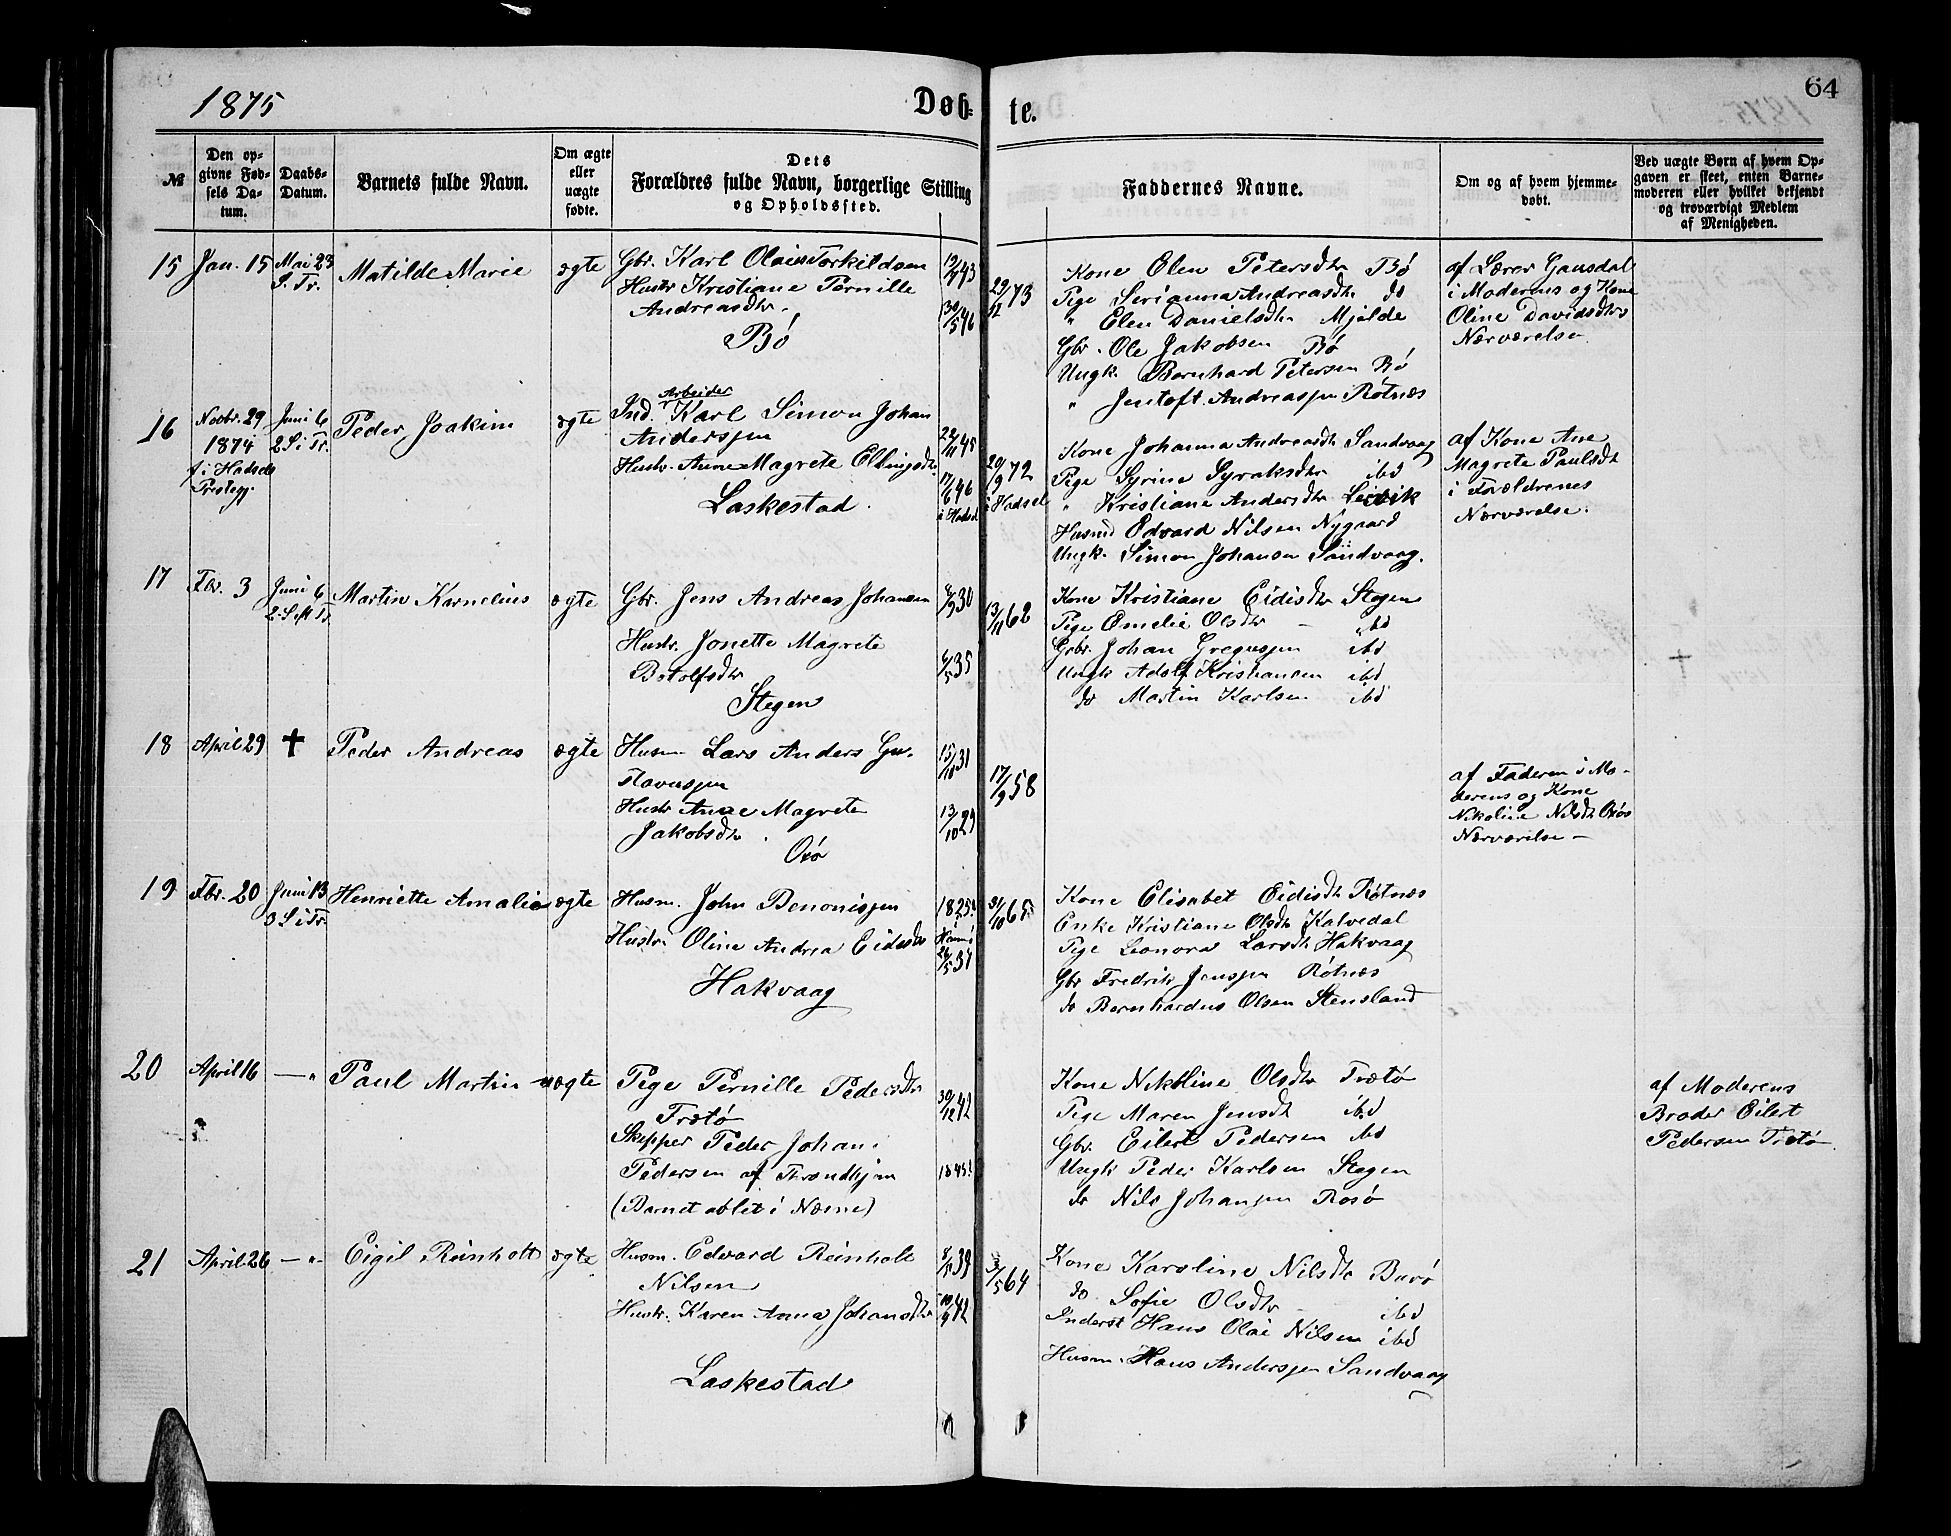 1875
Døb-
te.
64
№
Den op-
givne Fød-
sels Da-
tum.
Daabs-
Datum.
Barnets fulde Navn.
Om ægte
eller
uægte
fødte.
Dets
Forældres fulde Navn, borgerlige Stilling
og Opholdssted.
Faddernes Navne.
Om og af hvem hjemme-
døbt.
Ved uægte Børn af hvem Op-
gaven er skeet, enten Barne-
moderen eller hvilket bekjendt
og troværdigt Medlem
af Menigheden.
15
Jan. 15
Mai 23
S. Tr.
Matilde Marie
ægte
Gbr. Karl Olaus Torkildsen
Hustr Kristiane Pernille
Andreasdtr.
Bö
30/5 46
29/12 73
Kone Elen Petersdtr Bø
Pige Serianna Andreasdtr do
" Elen Danielsdtr Mjelde
Gbr. Ole Jakobsen Bø
Ungk. Bernhard Petersen Bø
" Jentoft Andreassen Røtnæs
af Lærer Gausdal
i Moderens og Kone
Oline Davidsdtrs
Nærværelse.
16
Novbr. 29
1874
f. i Hadsel
Prestegj.
Juni 6
2 S i Tr.
Peder Joakim
ægte
Ind. Arbeider Karl Simon Johan
Anderssen
Hustr. Anne Magrete Ellingsdtr.
Laskestad.
22/11 45
17/6 46
i Hadsel
20/9 72
i Hadsel
Kone Johanna Andreasdtr Sandvaag
Pige Syrine Syraksdtr ibd
" Kristiane Andersdtr Leivik
Husmd Edvard Nilsen Nygaard
Ungk. Simon Johansen Sandvaag.
af Kone Ane
Magrete Paulsdt
i Forældrenes
Nærværelse.
17
Fbr. 3
Juni 6
2 S eft Tr.
Martin Kornelius
ægte
Gbr. Jens Andreas Johansen
Hustr. Jonette Magrete
Botolfsdtr
Stegen
13/11 62
Kone Kristiane Eidisdtr Stegen
Pige Emelie Olsdtr - ibd
Gbr. Johan Gregussen ibd
Ungk Adolf Kristiansen ibd
do Martin Karlsen ibd
18
April 29
✝
Peder Andreas
ægte
Husm Lars Anders Gu-
stavussen
Hustr Anne Magrete
Jakobsdtr.
15/10 31
13/10 29
17/9 58
af Faderen i Mo-
derens og Kone
Nikoline Nilsdtr
Nærværelse -
19
Fbr. 20
Juni 13
3 S i Tr.
Henriette Amalie
ægte
Husm. John Benonissen
Hustr. Oline Andrea Eidisdtr
Hakvaag
1825
Kone Elisabet Eidisdtr Røtnæs
Enke Kristiane Olsdtr Kalvedal
Pige Leonora Larsdtr Hakvaag
Gbr Fredrik Jenssen Røtnæs
do Bernhardus Olsen Stensland
20
April 16
— "
Paul Martin
uægte
Pige Pernille Pedersdtr
Trætø
Skipper Peder Johan
Pedersen af Trondhjem
(Barnet avlet i Næsne)
30/12 42
1845?
Kone Nikoline Olsdtr Trætø
Pige Maren Jensdtr ibd
Gbr. Eilert Pedersen ibd
Ungk Peder Karlsen Stegen
do Nils Johansen Rosø
af Moderens
Broder Eilert
Pedersen Trætø
21
April 26
— "
Eigil Reinholt
ægte
Husm. Edvard Reinholt
Nilsen
Hustr. Karen Anna Johansdtr
Laskestad
Kone Karoline Nilsdtr Burø
do Sofie Olsdtr - ibd
Inderst Hans Olai Nilsen ibd
Husm. Hans Anderssen Sandvaag